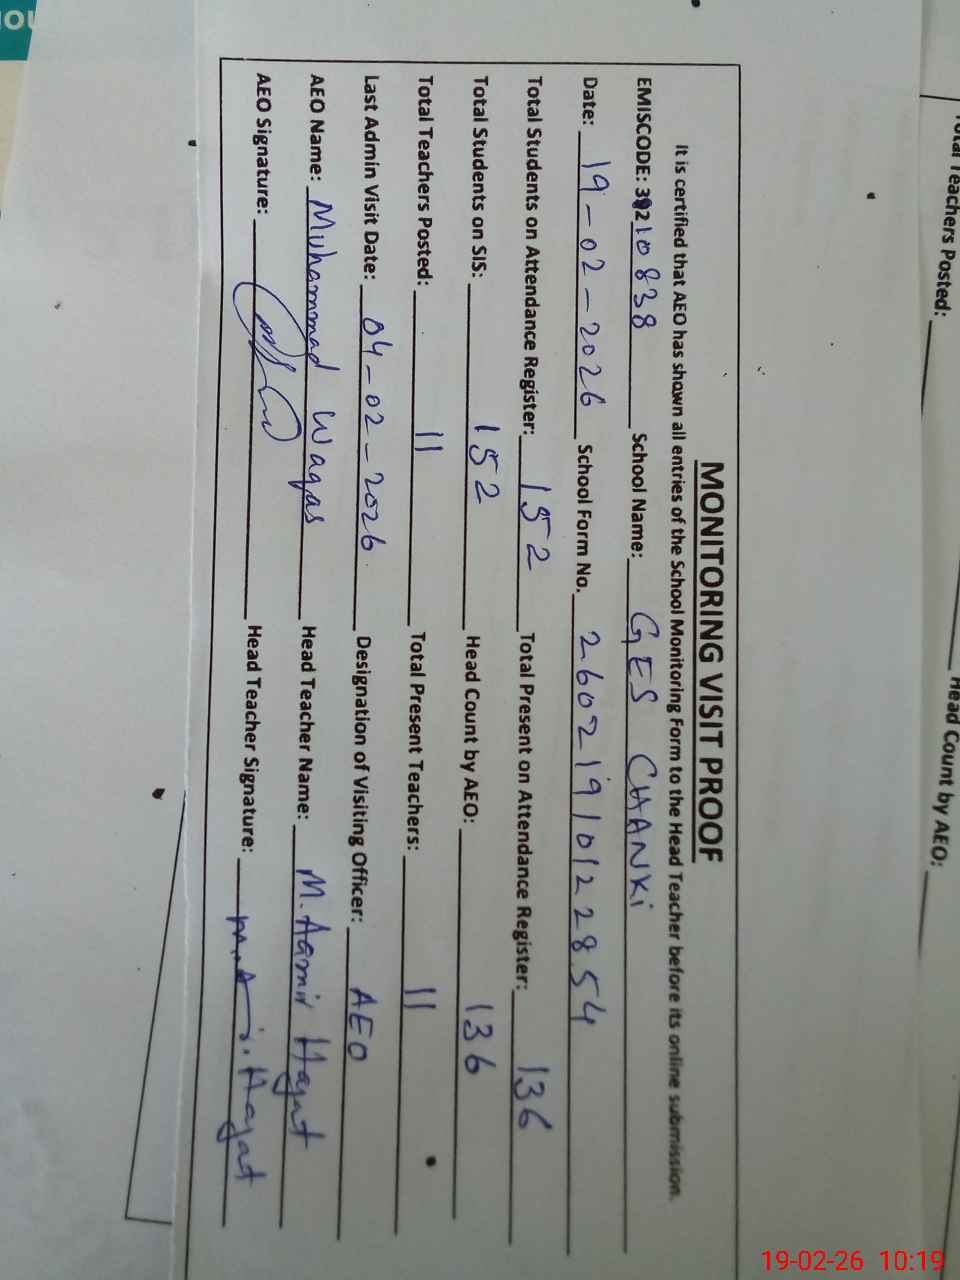 MONITORING VISIT PROOF
It is certified that AEO has shown all entries of the School Monitoring Form to the Head Teacher before its online submission.
EMISCODE: 39210838 School Name: GES CHANKi
Date: 19-02-2026 School Form No. 260219101228 54
Total Students on Attendance Register: 152 Total Present on Attendance Register: 136
Total Students on SIS: 152 Head Count by AEO: 136
Total Teachers Posted: 11 Total Present Teachers: 11
Last Admin Visit Date: 04-02-2026 Designation of Visiting Officer: AEO
AEO Name: Muhammad Waqas Head Teacher Name: M. Aamir Hayat
AEO Signature: Head Teacher Signature: Hayat
Total Teachers Posted:
Head Count by AEO:
19-02-26 10:19